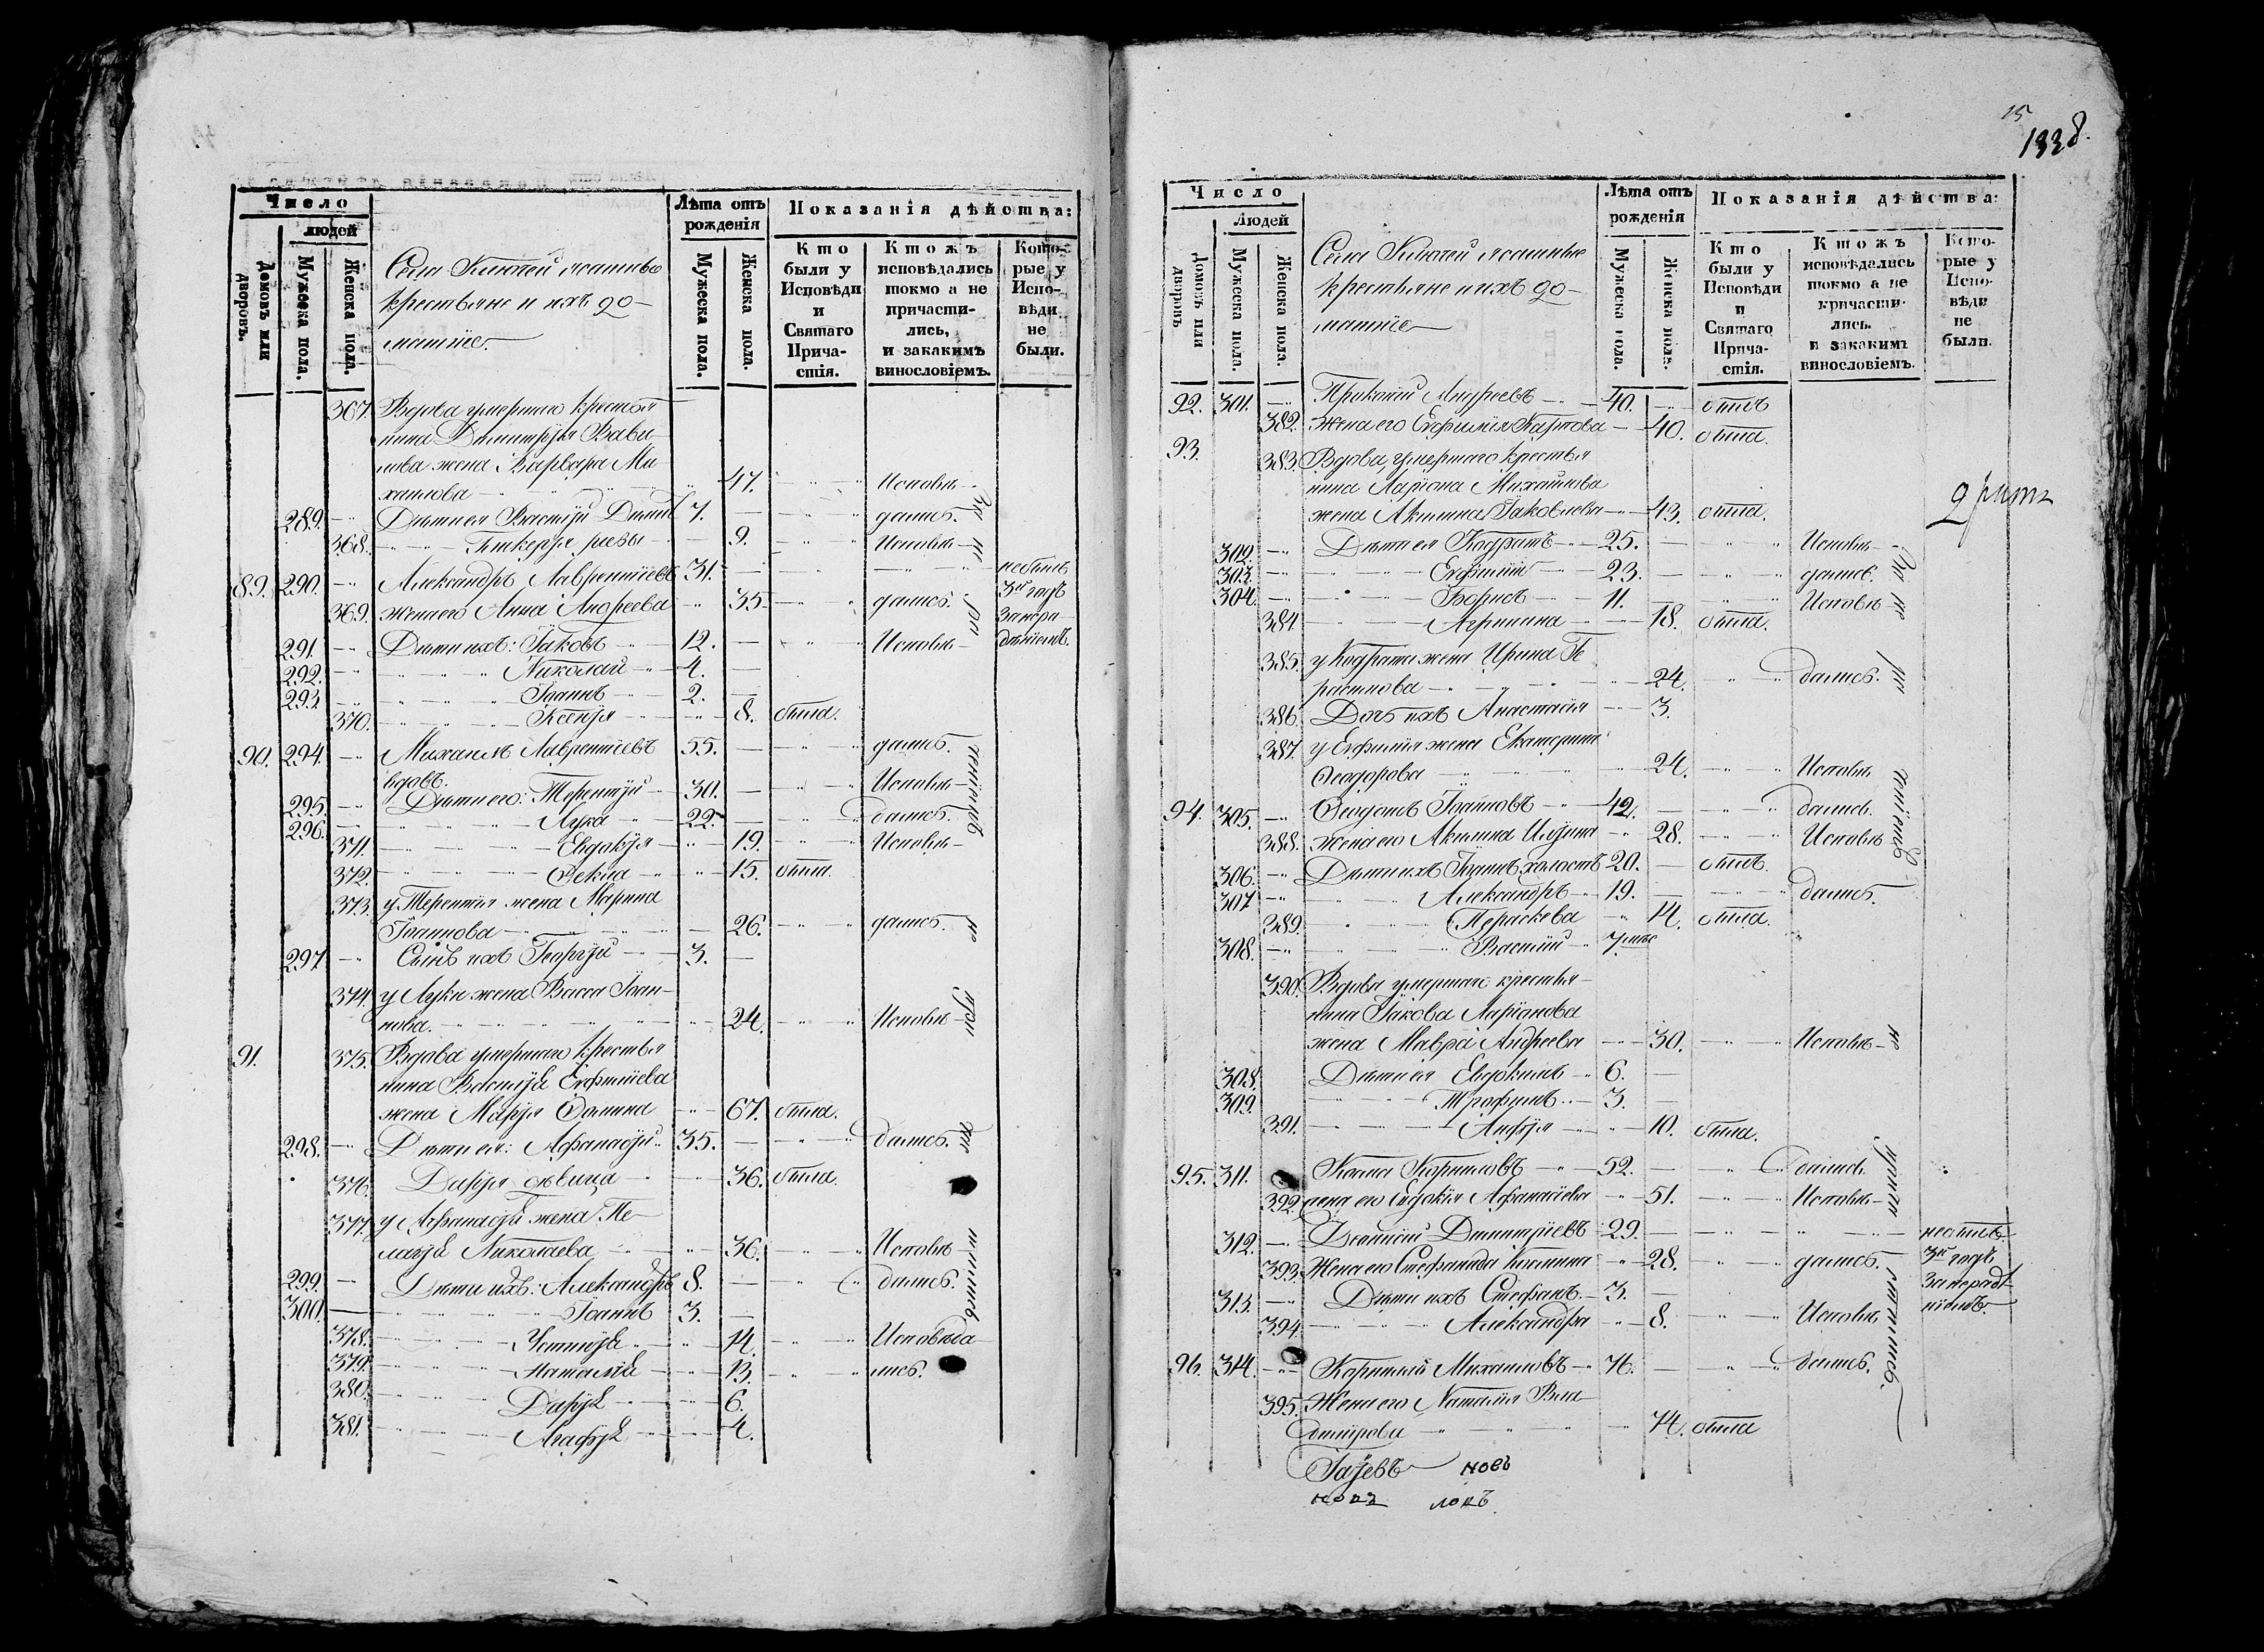 Число
людей
Домовъ или дворовъ.
Мужеска пола.
Женска пола.
Лѣта отъ рожденія
Мужеска пола.
Женска пола.
Показанія дѣйства:
Кто были у Исповѣди и Святаго Причастія.
Ктожъ исповѣдались токмо а не причастились, и закакимъ винословіемъ.
Которые у Исповѣди не были.
Села Ключей ясашные
крестьяне и ихъ до-
машніе.
367. Вдова умершаго крестья
нина Димитрія Вави
лова жена Варвара Ми
хаилова 47. Исповѣ-
289. Дѣти ея Василій 7. дались.
368. Гликерія 9. Исповѣ-
89. 290. Александръ Лаврентіевъ 31. небылъ
369. жена его Анна Андреева 35 дались. 3й годъ
291. Дѣти ихъ: Іаковъ 12. Исповѣ-
292. Николай 4.
293. Іоаннъ 2.
370. Ксенія 8. была.
90. 294. Михаилъ Лаврентіевъ 55. дались.
вдовъ.
295. Дѣти его: Терентій 30. Исповѣ-
296. Лука 22. дались.
371. Евдокія 19. Исповѣ-
372. Ѳекла 15. была
373. у Терентія жена Марина
Іоаннова 26. дались.
297. Сынъ ихъ Георгій 3.
374. у Луки жена Васса Іоан-
нова. 24. Исповѣ-
91. 375. Вдова умершаго крестья
нина Василія Евфиміева
жена Марія Ѳомина 67. была.
298. Дѣти ея: Аѳанасій 35. дались.
376. Дарія дѣвица 36. была.
377. у Аѳанасія жена Пе-
лагія Николаева 36. Исповѣ-
299. Дѣти ихъ: Александръ 8. дались.
300. Іоаннъ 3.
378. Устинія 14. Исповѣда
379. Наталія 13. лись.
380. Дарія 6.
381. Агафія 4.
15
1338.
Число
Людей
Домовъ или дворовъ
Мужеска пола.
Женска пола.
Лѣта отъ рожденія
Мужеска пола.
Женска пола.
Показанія дѣйства:
Кто были у Исповѣди и Святаго Причастія.
Ктожъ исповѣдались токмо а не причастились. и закакимъ винословіемъ.
Которые у Исповѣди не были.
Села Ключей ясашные
крестьяне и ихъ до-
машніе
92. 301. Прокопій Андреевъ 40. былъ
382. жена его Евфимія Карпова 40. была.
93. 383. Вдова, умершаго крестья
нина Ларіона Михайлова
жена Акилина Іаковлева 43. была.
302. Дѣти ея Кодратъ 25. Исповѣ-
303. Евфимій 23. дались.
304. Борисъ 11. Исповѣ-
384. Агрипина 18. была.
385. у Кодрата жена Ирина
24. дались.
386. Дочь ихъ Анастасія 3.
387. у Евфимія жена Екатерина
Ѳеодорова 24. Исповѣ
94. 305. Ѳедотъ Іоанновъ 42. дались.
388. жена его Акилина Иліина 28. Исповѣ
306. Дѣти ихъ Іоаннъ холостъ 20. былъ.
307 Александръ 19. дались.
389. Параскева 14. была.
308. Василій 7 мѣс
390. Вдова умершаго крестья-
нина Іакова Ларіонова
жена Мавра Андреева 30. Исповѣ-
308. Дѣти ея Евдокимъ 6.
309. Трофимъ 3.
391. 10. была.
95. 311. Косма Кириловъ 52. дались.
392. жена его Евдокія Аѳанасіева 51. Исповѣ-
312. Діонисій Димитріевъ 29. небылъ.
393. Жена его Стефанида Козмина 28. дались. 3й годъ
313. Дѣти ихъ Стефанъ 3. за нерадѣ-
394. Александра 8. Исповѣ ніемъ.
96. 314. Корнилій Михаиловъ 76. дались.
395. Жена его Наталія Вла
димірова 74. была
новъ